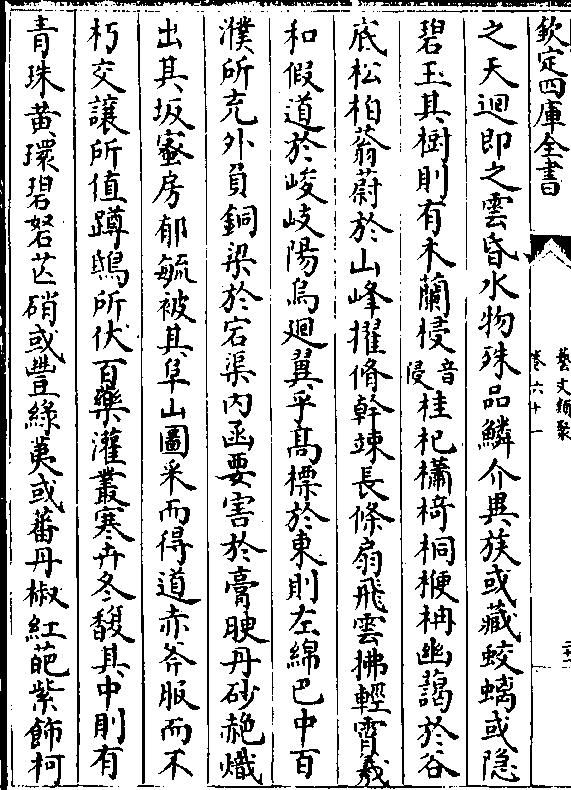 欽定四庫全書
藝文類聚
卷六十一
之天迴即之雲昏水物殊品鱗介異族或藏蛟螭或隐
碧玉其樹則有木蘭梫音浸桂杞櫹椅桐椶枏幽藹於谷
底松柏蓊蔚於山峰擢脩幹竦長條扇飛雲拂輕霄羲
和假道於峻岐陽烏迴翼乎髙標於東則左綿巴中百
濮所充外負銅梁於宕渠内函要害於膏腴丹砂赩熾
出其坂蜜房郁毓被其阜山圖采而得道赤斧服而不
朽交讓所值蹲鴟所伏百藥灌叢寒卉冬馥其中則有
青珠黄環碧砮芒硝或豐綠荑或蕃丹椒紅葩紫飾柯